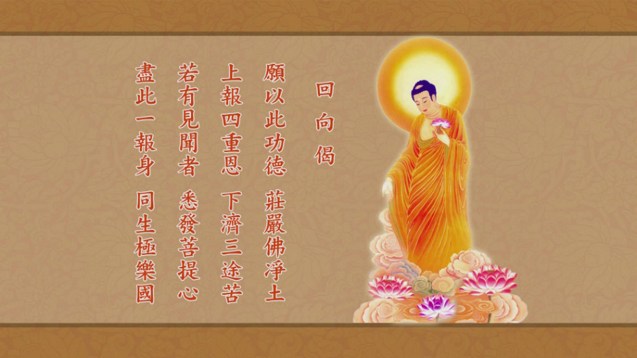 回向偈
願以此功德 莊嚴佛淨土
上報四重恩 下濟三途苦
若有見聞者 悉發菩提心
盡此一報身 同生極樂國